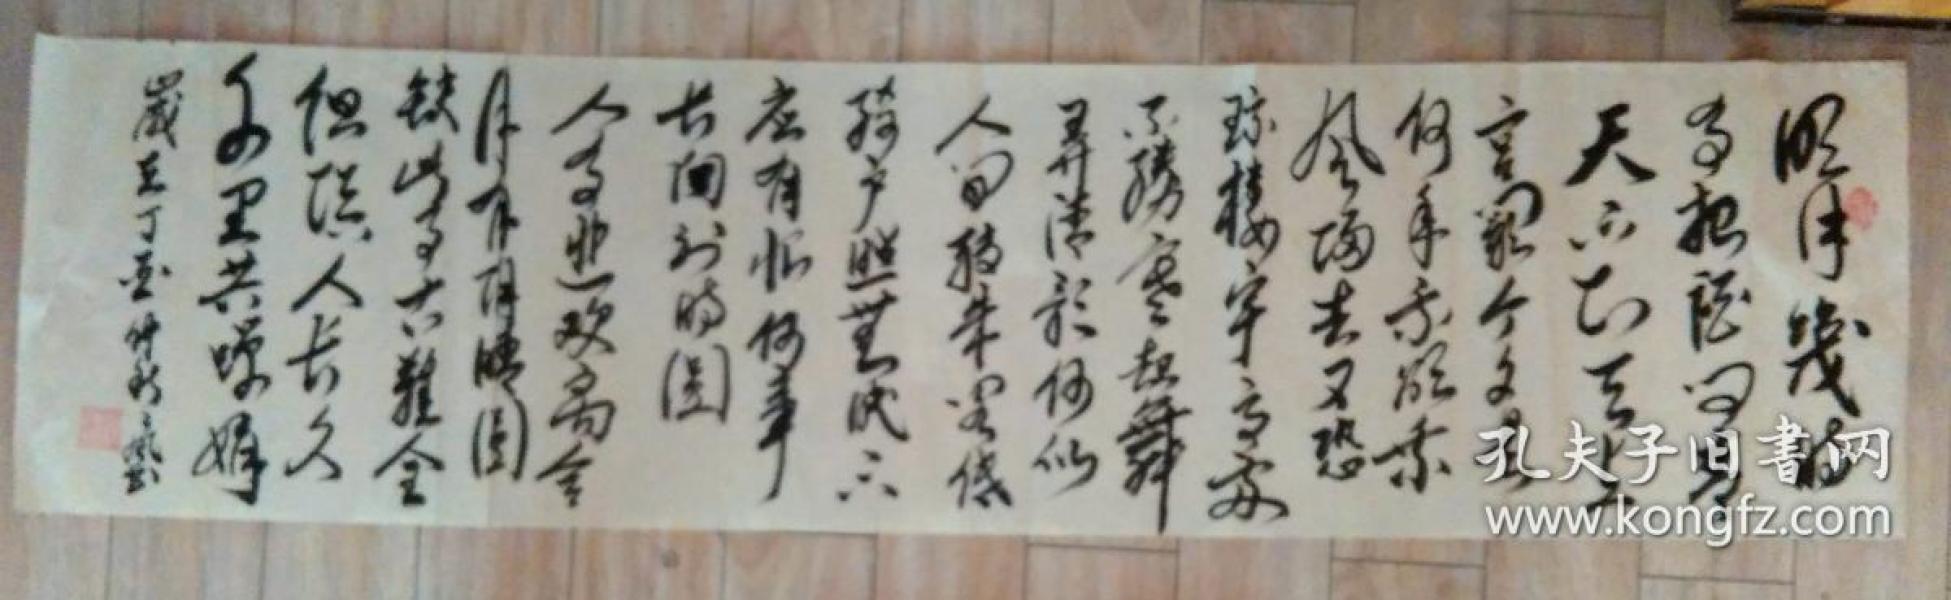 明月几时
有把酒问青
天不知天上
宫阙今夕是
何年我欲乘
风归去又恐
琼楼玉宇高处
不胜寒起舞
弄清影何似
人间转朱阁低
绮户照无眠不
应有恨何事
长向别时圆
人有悲欢离合
月有阴晴圆
缺此事古难全
但愿人长久
千里共婵娟
岁在丁亥仲秋
孔夫子旧书网
www.kongfz.com